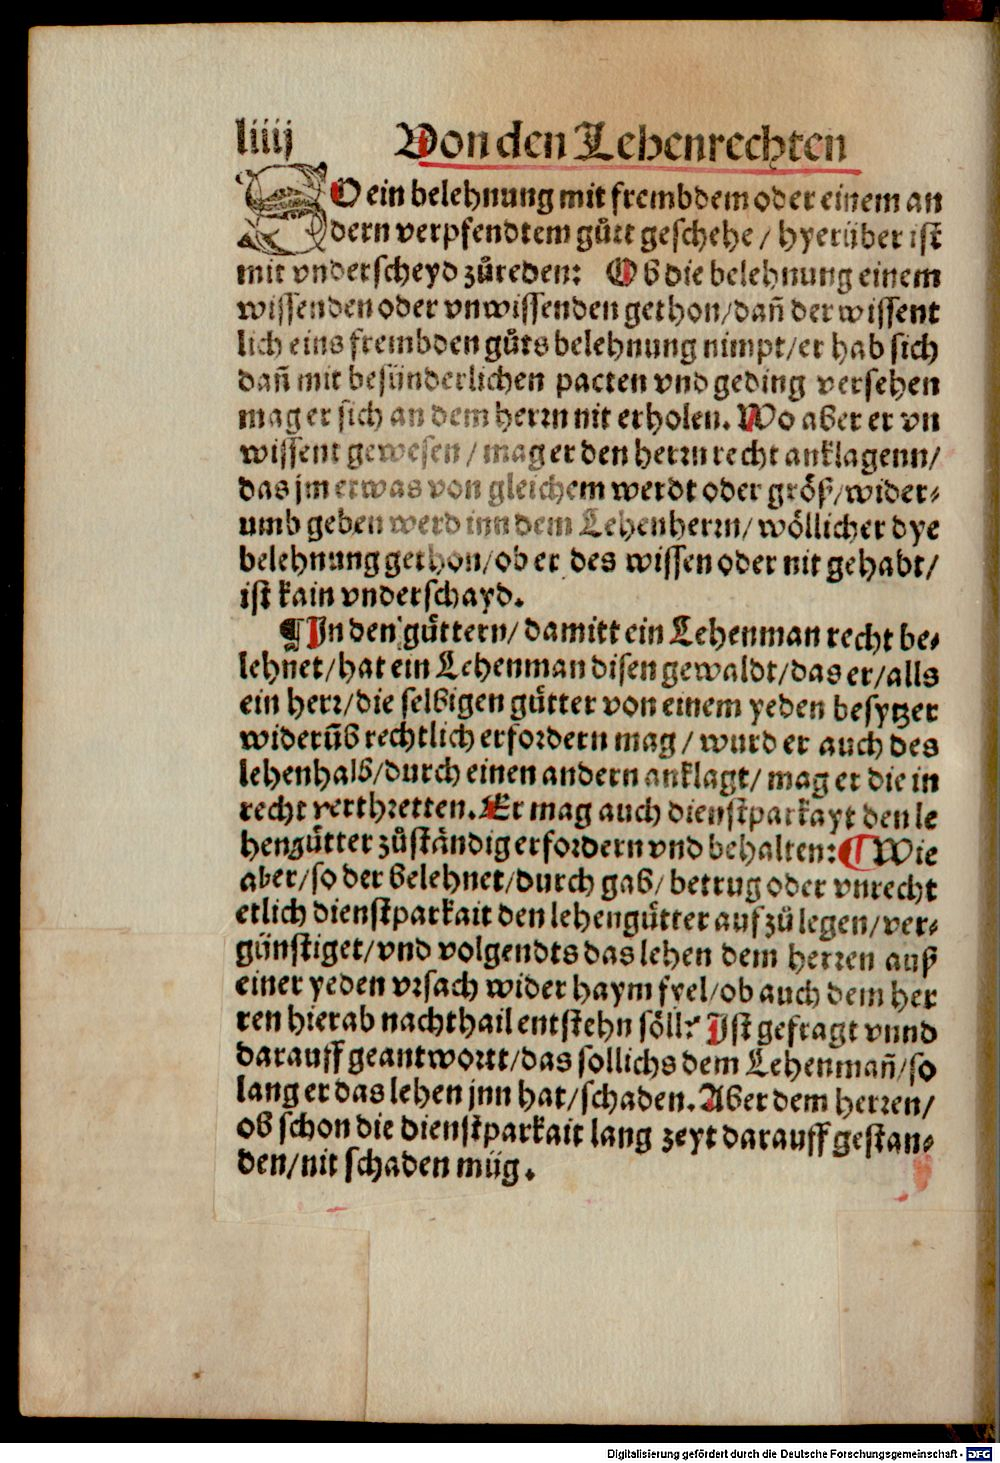 liiij Von den Lehenrechten
SO ein belehnung mit frembdem oder einem an
dern verpfendtem gůtt geschehe / hyerüber ist
mit vnderscheyd zůreden: Ob die belehnung einem
wissenden oder vnwissenden gethon/dañ der wissent
lich eins frembden gůts belehnung nimpt/er hab sich
dañ mit besünderlichen pacten vnd geding versehen
mag er sich an dem herrn nit erholen. Wo aber er vn
wissent gewesen / mag er den herrn recht anklagenn/
das jm etwas von gleichem werdt oder größ/wider⸗
umb geben werd inn dem Lehenherrn/ wöllicher dye
belehnung gethon/ob er des wissen oder nit gehabt/
ist kain vnderschayd.
¶ In den gůttern/ damitt ein Lehenman recht be⸗
lehnet/hat ein Lehenman disen gewaldt/das er/alls
ein herr/die selbigen gůtter von einem yeden besytzer
widerũb rechtlich erfordern mag / wurd er auch des
lehenhalb/durch einen andern anklagt/ mag er die in
recht verthretten. Er mag auch dienstparkayt den le
hengůtter zůständig erfordern vnd behalten: ¶ Wie
aber/so der belehnet/durch gab/ betrug oder vnrecht
etlich dienstparkait den lehengůtter auf zů legen/ver⸗
günstiget/vnd volgendts das lehen dem herren auß
einer yeden vrsach wider haym fyel/ob auch dem her
ren hierab nachthail entstehn söll? Ist gefragt vnnd
darauff geantwortt/das sollichs dem Lehenmañ/so
lang er das lehen jnn hat/schaden. Aber dem herren/
ob schon die dienstparkait lang zeyt darauff gestan⸗
den/nit schaden müg.
Digitalisierung gefördert durch die Deutsche Forschungsgemeinschaft - DFG